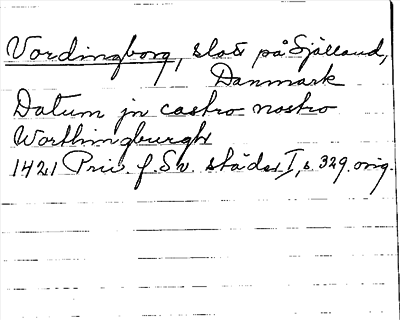 Vordingborg, slott på Själland,
Danmark
Datum in castro nostro
Worthingburgh
1421 Priv. f. Sv. städer I, s. 329. orig.